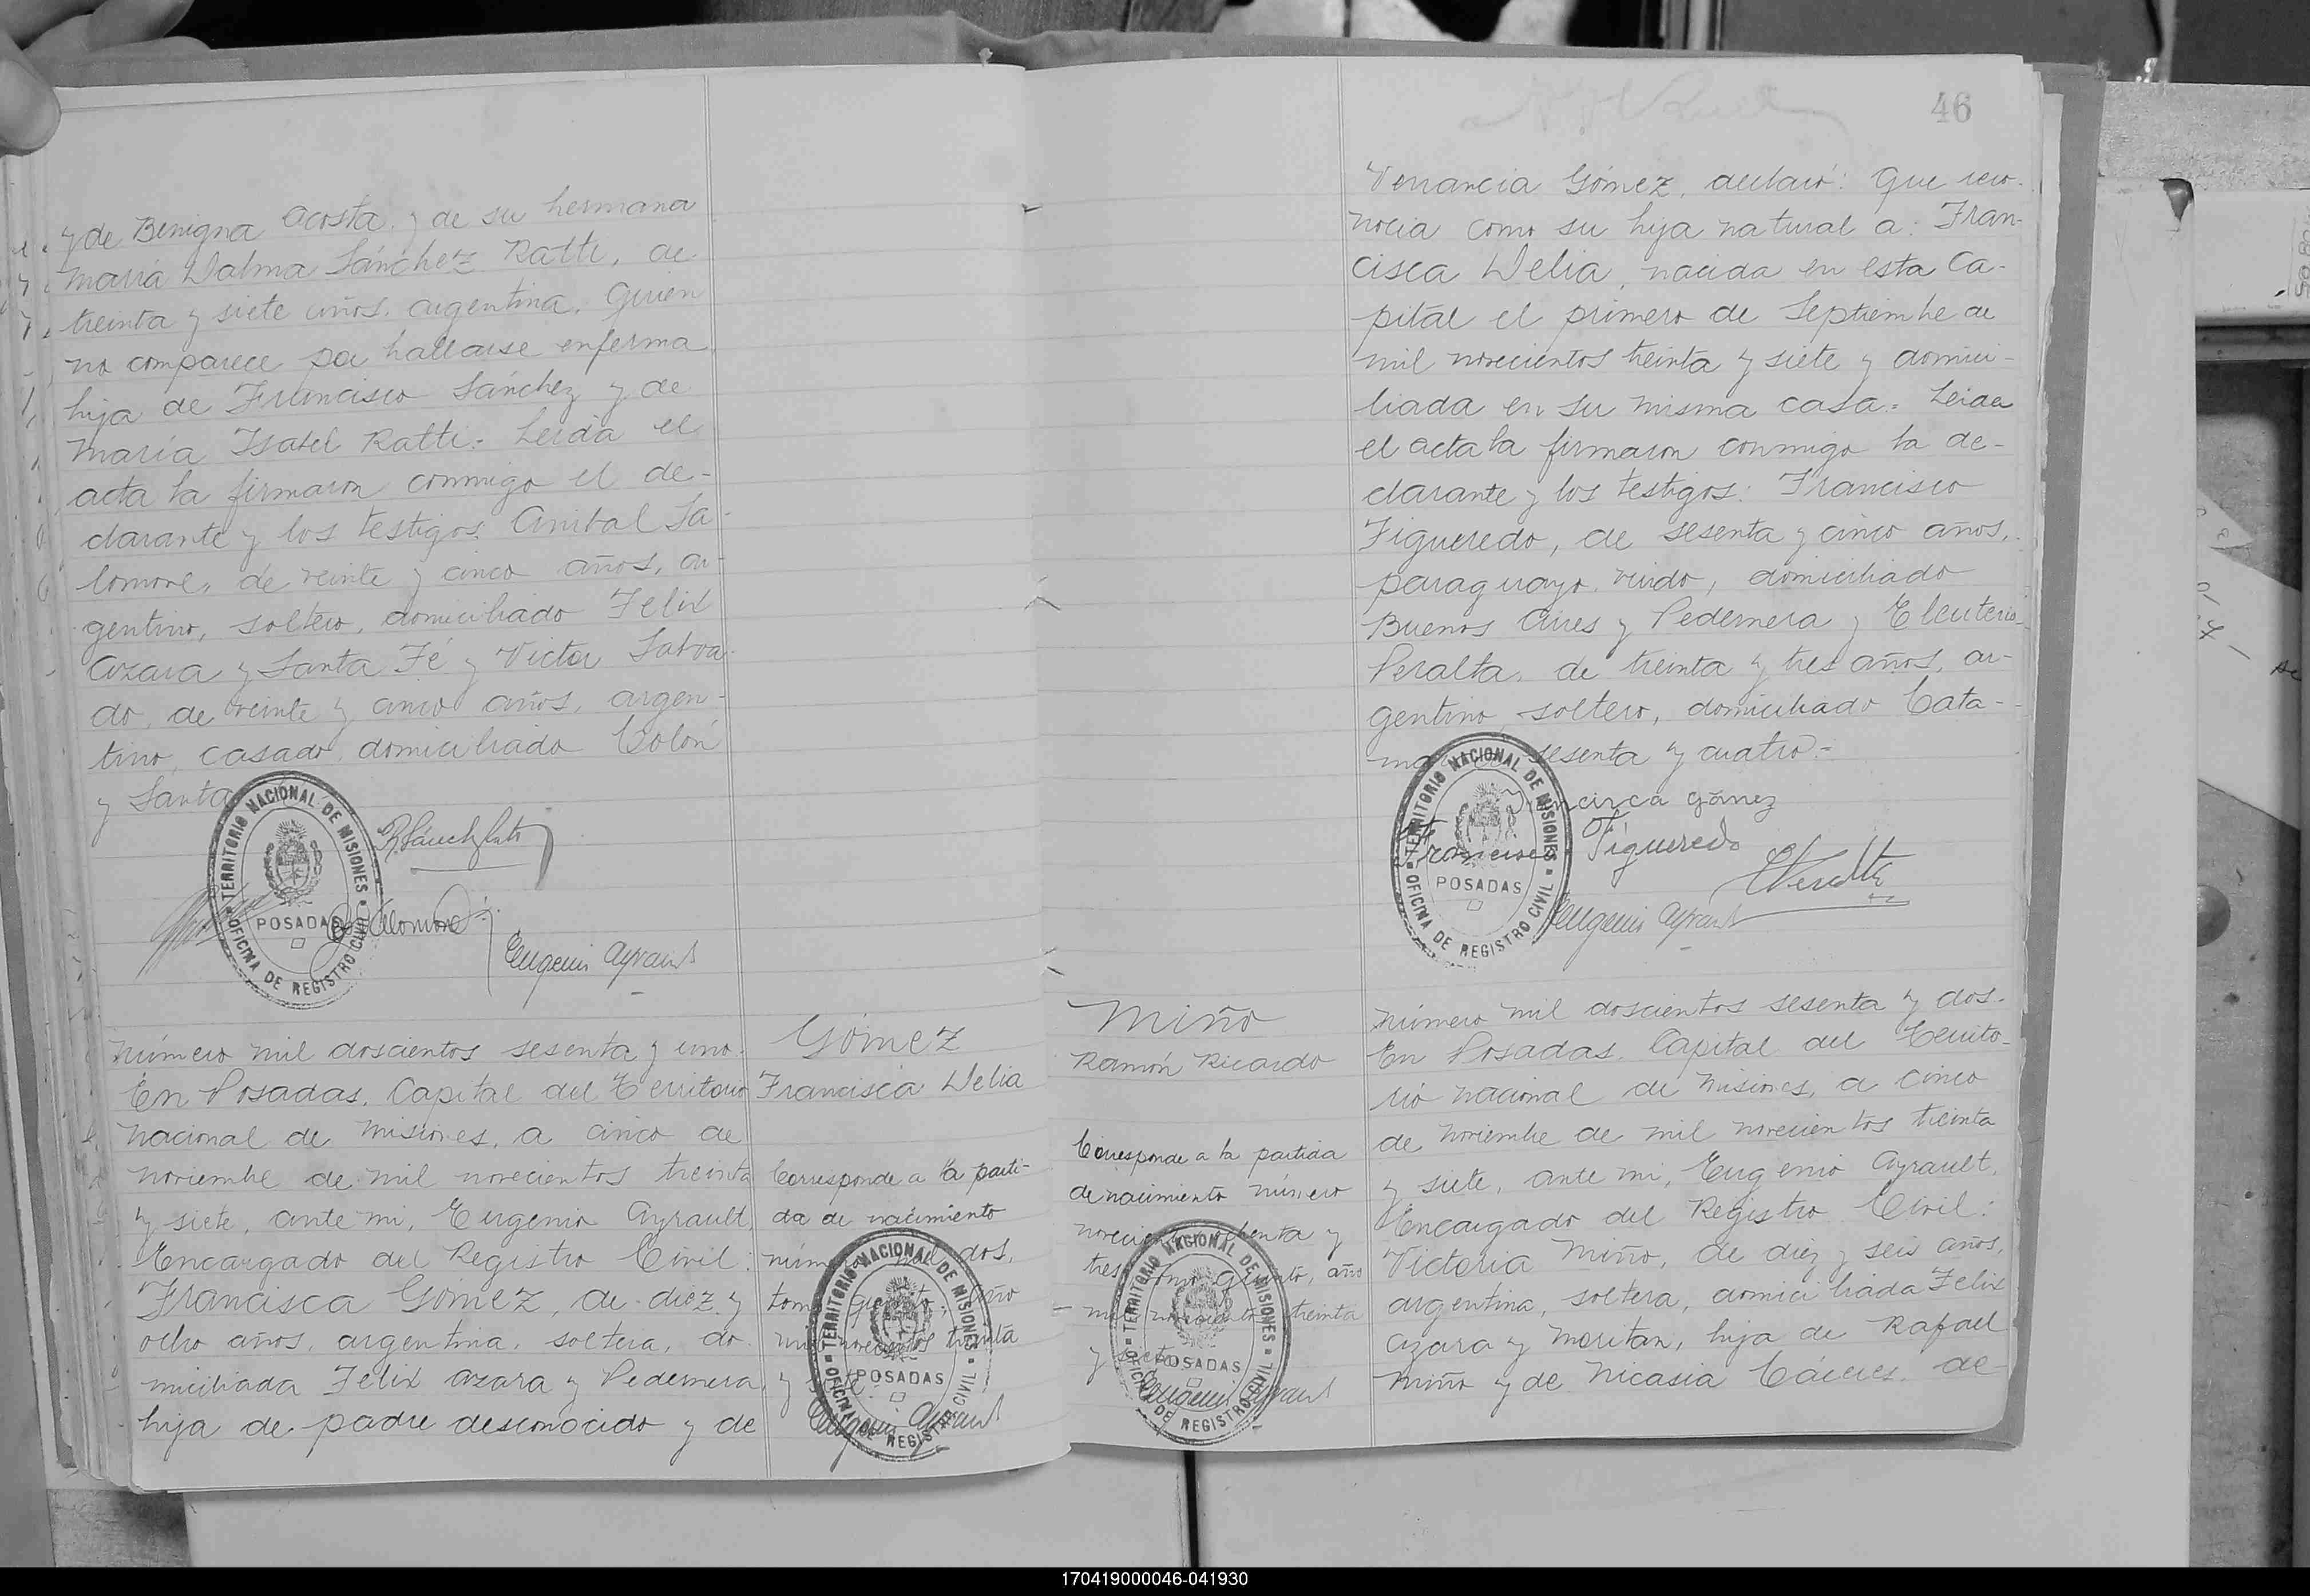 y de Benigna Acosta y de su hermana
María Dalma Sánchez Ratti, de
treinta y siete años, argentina, quien
no comparece por hallarse enferma
hija de Francisco Sánchez y de
María Isabel Ratti.- Leida el
acta la firmaron conmigo el de-
clarante y los testigos Anibal Sa-
lomone, de veinte y cinco años, ar-
gentino, soltero, domiciliado Felix
Azara y Santa Fé y Victor Salva-
do, de veinte y cinco años, argen-
tino, casado, domiciliado Colón
y Santa
TERRITORIO NACIONAL DE MISIONES
POSADAS
OFICINA DE REGISTRO CIVIL
Eugenio Ayrault
Número mil doscientos sesenta y uno.
En Posadas, Capital del Territorio
Nacional de Misiones, a cinco de
noviembre de mil novecientos treinta
y siete, ante mi, Eugenio Ayrault,
Encargado del Registro Civil:
Francisca Gómez, de diez y
ocho años, argentina, soltera, do-
miciliada Felix Azara y Pedernera,
hija de padre desconocido y de
Gómez
Francisca Delia
Corresponde a la parti-
da de nacimiento
número mil dos,
tomo quinto, año
mil novecientos treinta
y
Eugenio Ayrault
TERRITORIO NACIONAL DE MISIONES
POSADAS
OFICINA DE REGISTRO CIVIL
46
Venancia Gómez, declaró: Que reco-
nocia como su hija natural a: Fran-
cisca Delia, nacida en esta Ca-
pital el primero de Septiembre de
mil novecientos treinta y siete y domici-
liada en su misma casa.- Leida
el acta la firmaron conmigo la de-
clarante y los testigos: Francisco
Figueredo, de sesenta y cinco años,
paraguayo, viudo, domiciliado
Buenos Aires y Pedernera y Eleuterio
Peralta, de treinta y tres años, ar-
gentino, soltero, domiciliado Cata-
marca sesenta y cuatro.-
Francisca Gómez
Francisco Figueredo
EPeralta
Eugenio Ayrault
TERRITORIO NACIONAL DE MISIONES
POSADAS
OFICINA DE REGISTRO CIVIL
Miño
Ramón Ricardo
Corresponde a la partida
de nacimiento número
novecientos ochenta y
tres, tomo quinto, año
mil novecientos treinta
y siete
Eugenio Ayrault
TERRITORIO NACIONAL DE MISIONES
POSADAS
OFICINA DE REGISTRO CIVIL
Número mil doscientos sesenta y dos.-
En Posadas, Capital del Territo-
rio Nacional de Misiones, a cinco
de noviembre de mil novecientos treinta
y siete, ante mi, Eugenio Ayrault,
Encargado del Registro Civil:
Victoria Miño, de diez y seis años,
argentina, soltera, domiciliada Felix
Azara y Moritan, hija de Rafael
Miño y de Nicasia Cáceres, de-
170419000046-041930